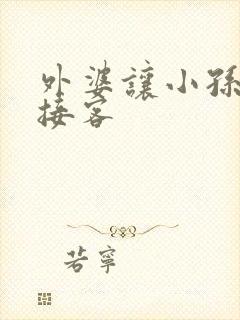 外婆讓小孫
接客
若寧